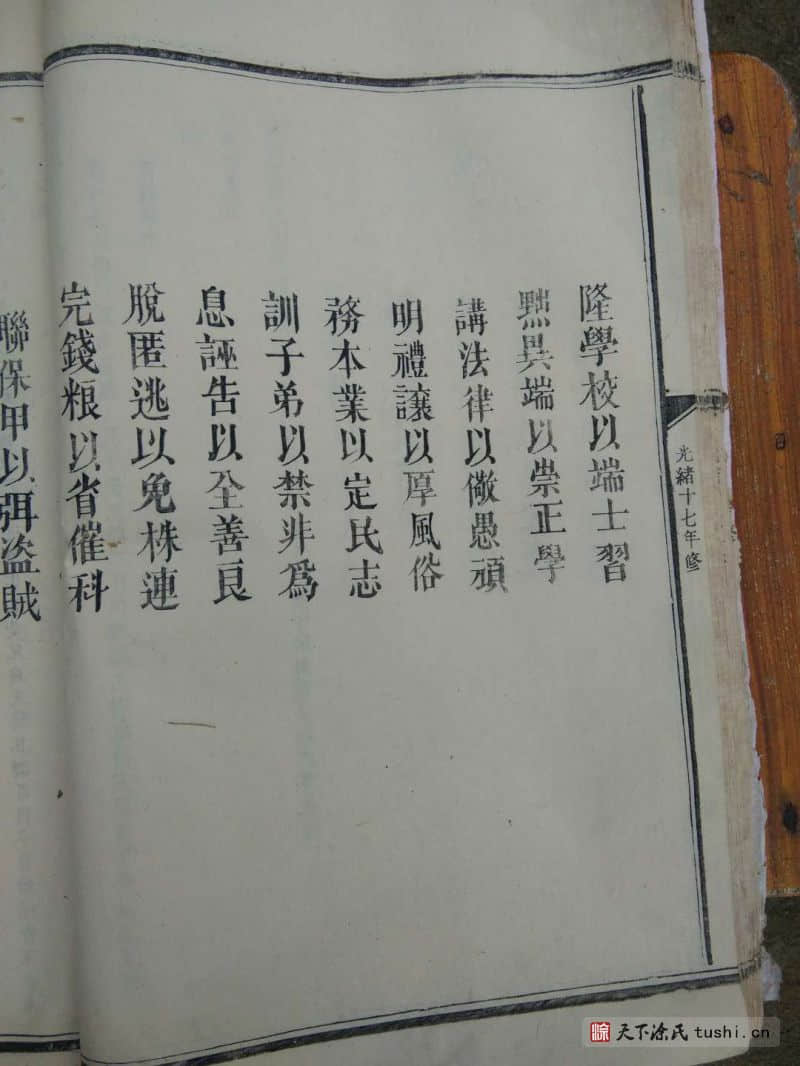 光緒十七年修
隆學校以端士習
黜異端以崇正學
講法律以儆愚頑
明禮讓以厚風俗
務本業以定民志
訓子弟以禁非為
息誣告以全善良
脫匿逃以免株連
完錢粮以省催科
聯保甲以弭盜賊
涂 天下涂氏 tushi.cn